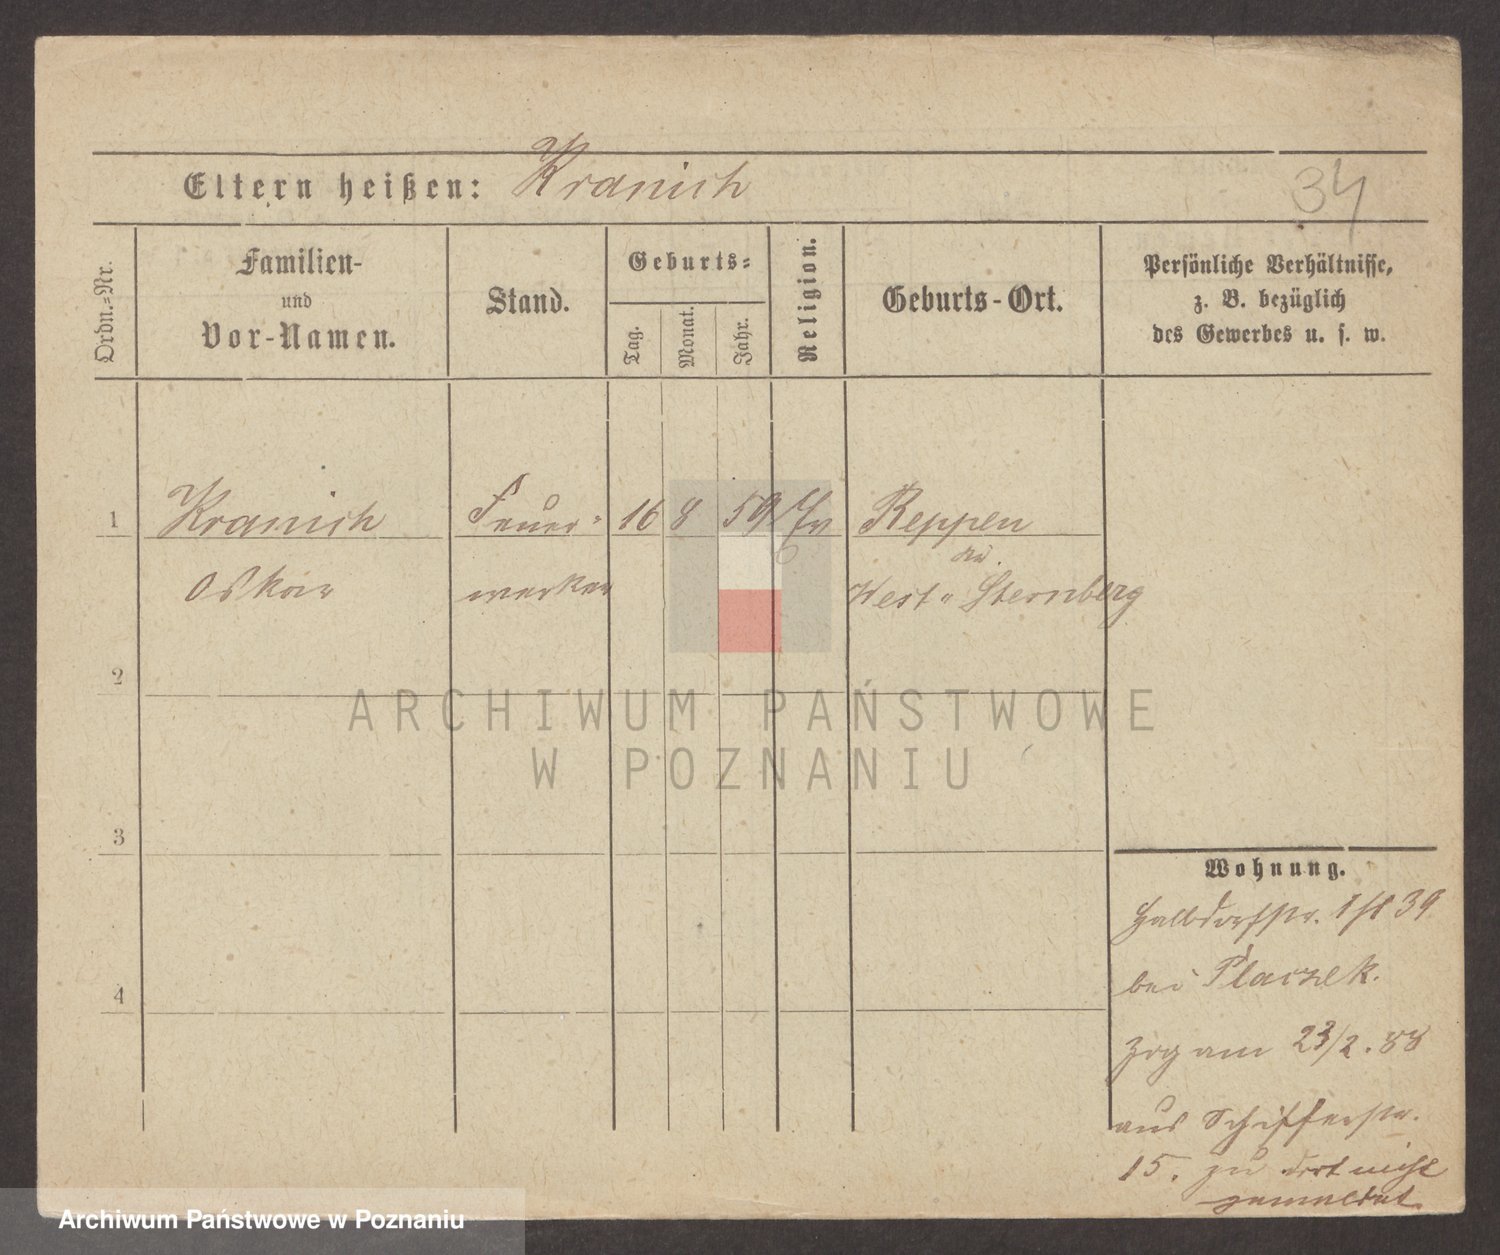 Eltern heißen: Kranich
34
Ordn.=Nr.
Familien-
und
Vor-Namen.
Stand.
Geburts=
Tag.
Monat.
Jahr.
Religion.
Geburts-Ort.
Persönliche Verhältnisse,
z. B. bezüglich
des Gewerbes u. s. w.
1 Kranich Feuer- 16 8 59 Ev Reppen
Oskar werker West- Sternberg
2
3
4
Wohnung.
Halbdorfstr. 39
bei Placzek.
Zog am 23/2. 88
aus Schifferstr.
15. zu dort nicht
gemeldet.
ARCHIWUM PAŃSTWOWE
W POZNANIU
Archiwum Państwowe w Poznaniu